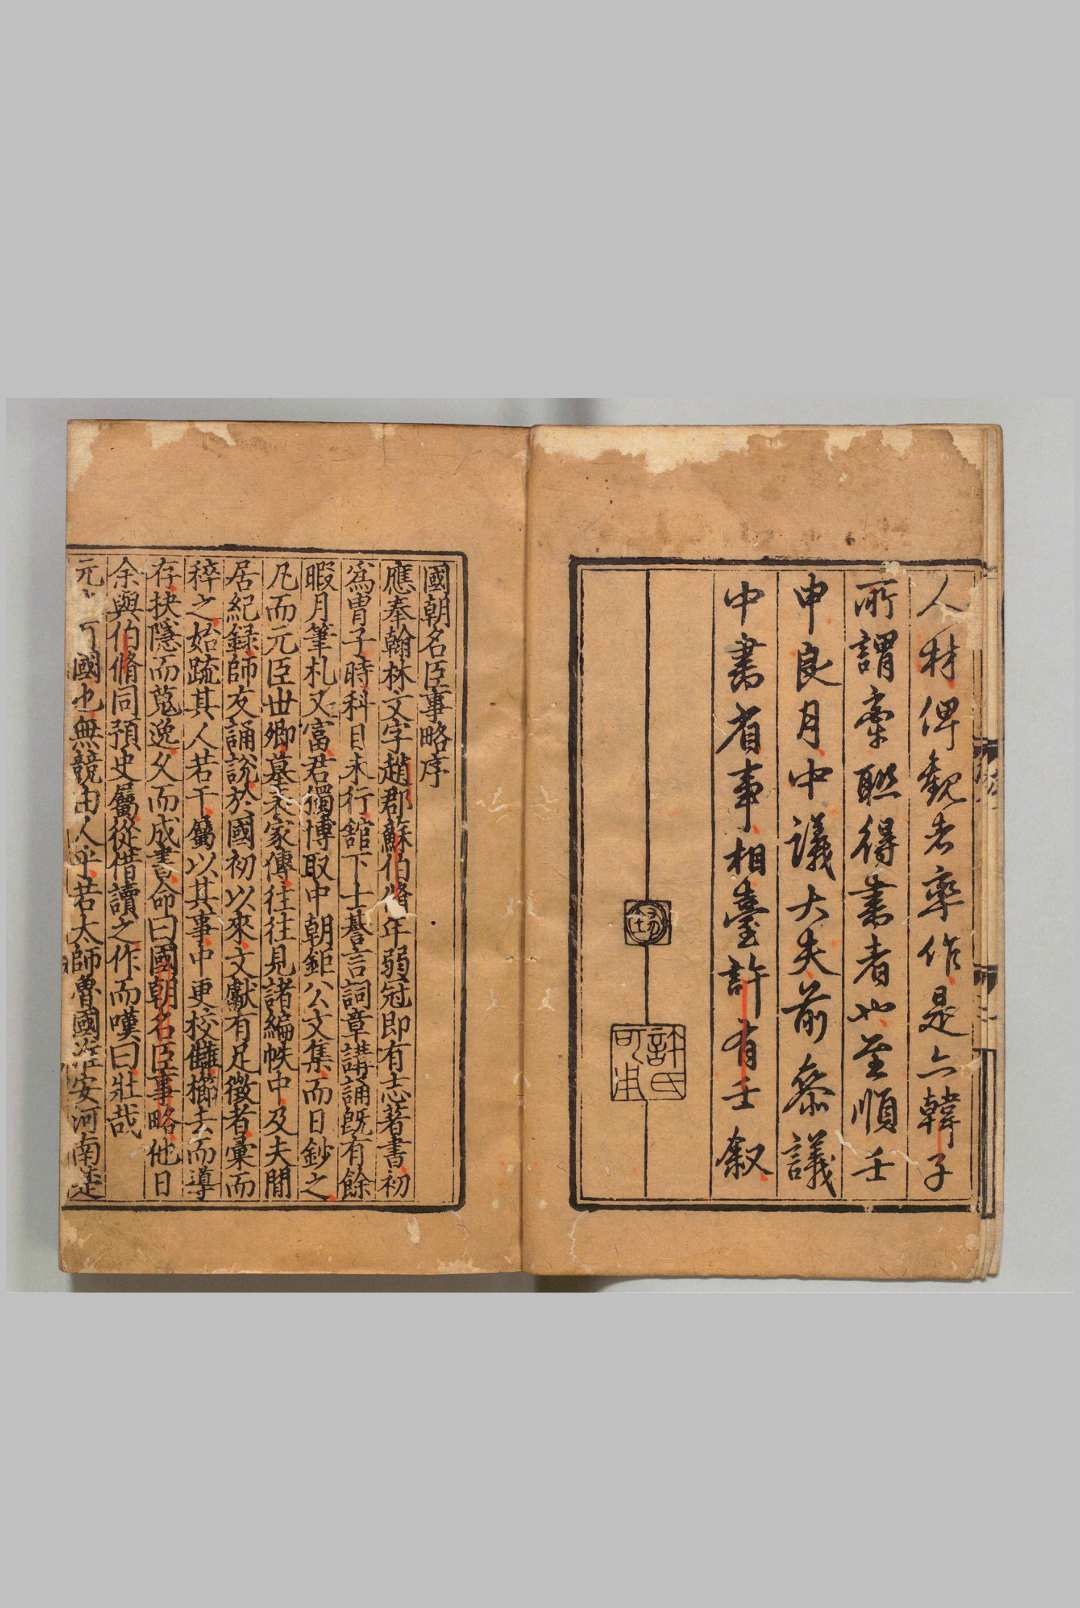 人材俾觀者率作是亦韓子
所謂牽聯得書者也至順壬
申良月中議大夫前參議
中書省事相臺許有壬叙
許氏
可用
國朝名臣事略序
應奉翰林文字趙郡蘇伯脩年弱冠即有志著書初
爲胄子時科目未行舘下士惎言詞章講誦旣有餘
暇月筆札又富君獨博取中朝鉅公文集而日鈔之
凡而元臣世卿墓表家傳往往見諸編帙中及夫閒
居紀録師友誦說於國初以來文獻有足徵者彙而
稡之始疏其人若干屬以其事中更校讎櫛去而導
存抉隱而蒐逸久而成書命曰國朝名臣事略他日
余與伯脩同預史屬從借讀之作而嘆曰壯哉
元 國也無競由人乎若太師魯國淮安河南楚